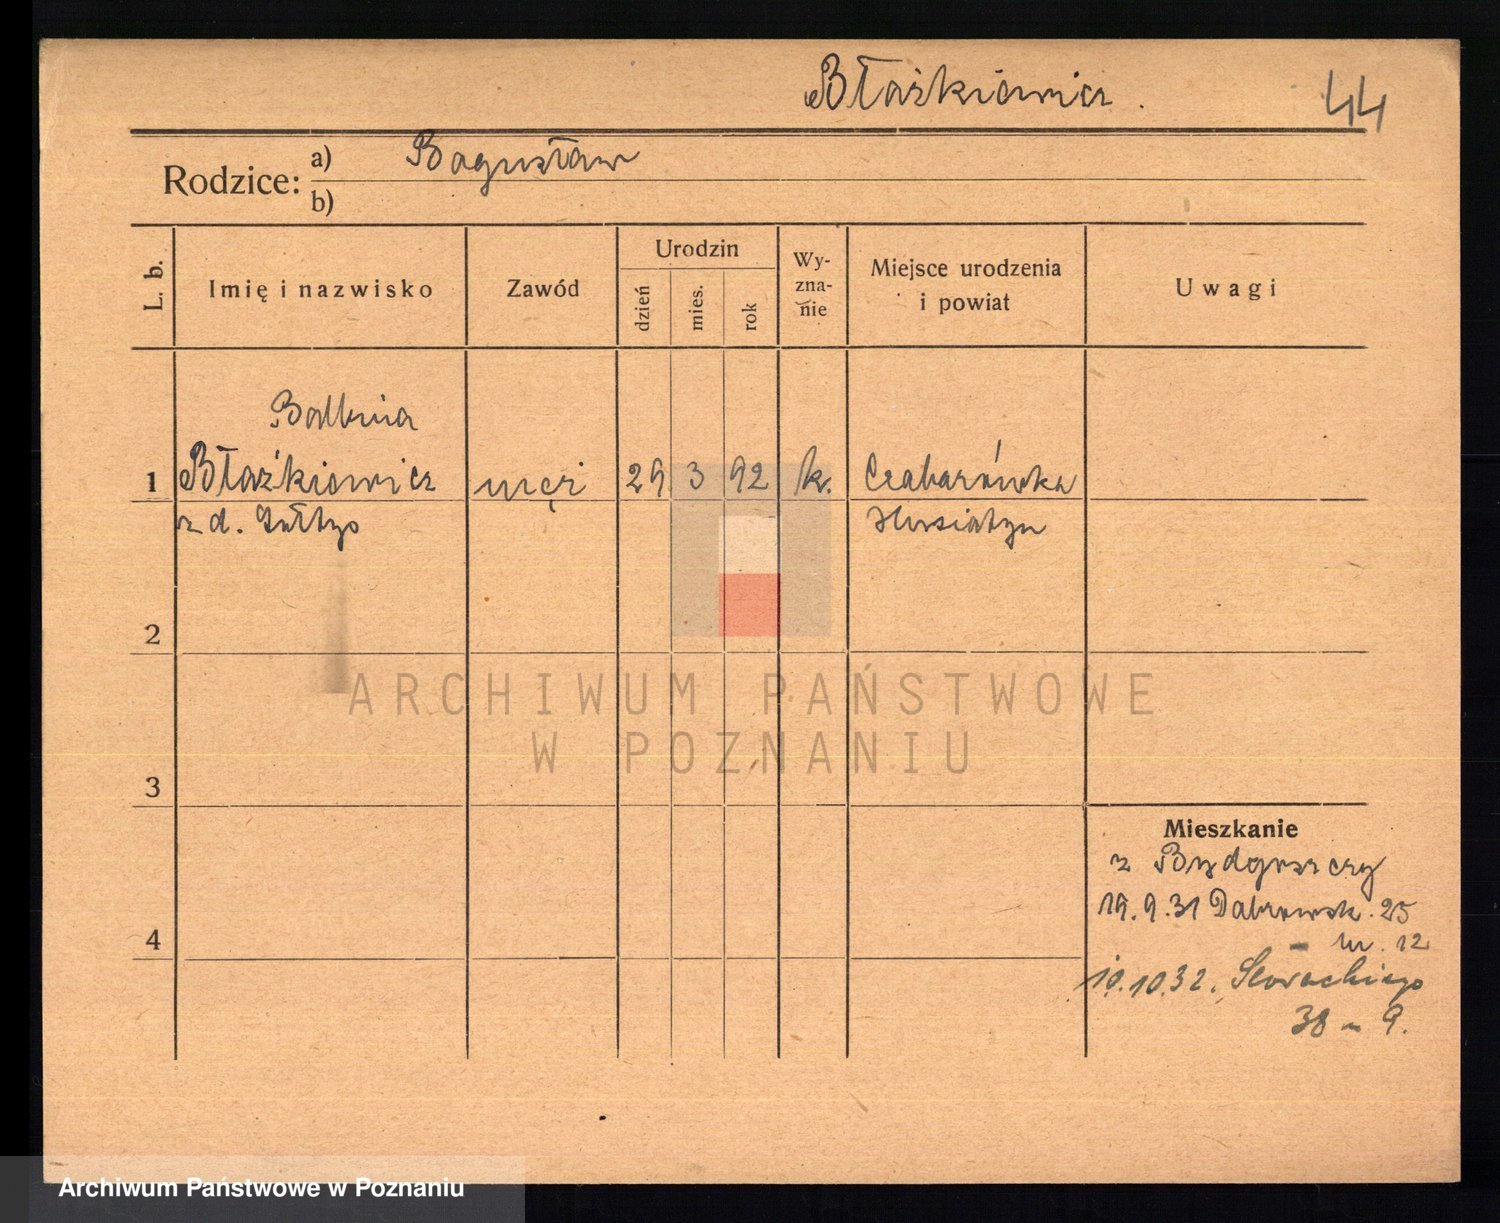 Błażkiewicz.
44
Rodzice:
a) Bogusław
b)
L. b.
Imię i nazwisko
Zawód
Urodzin
dzień
mies.
rok
Wy-
zna-
nie
Miejsce urodzenia
i powiat
Uwagi
Balbina
1 Błażkiewicz 29 3 92 k. Czabarówka
z d.
Husiatyn
2
ARCHIWUM PAŃSTWOWE
W POZNANIU
3
Mieszkanie
z Bydgoszczy
19.9.31 Dąbrowsk. 25
4
m. 12
10.10.32. Słowackiego
38 m 9.
Archiwum Państwowe w Poznaniu